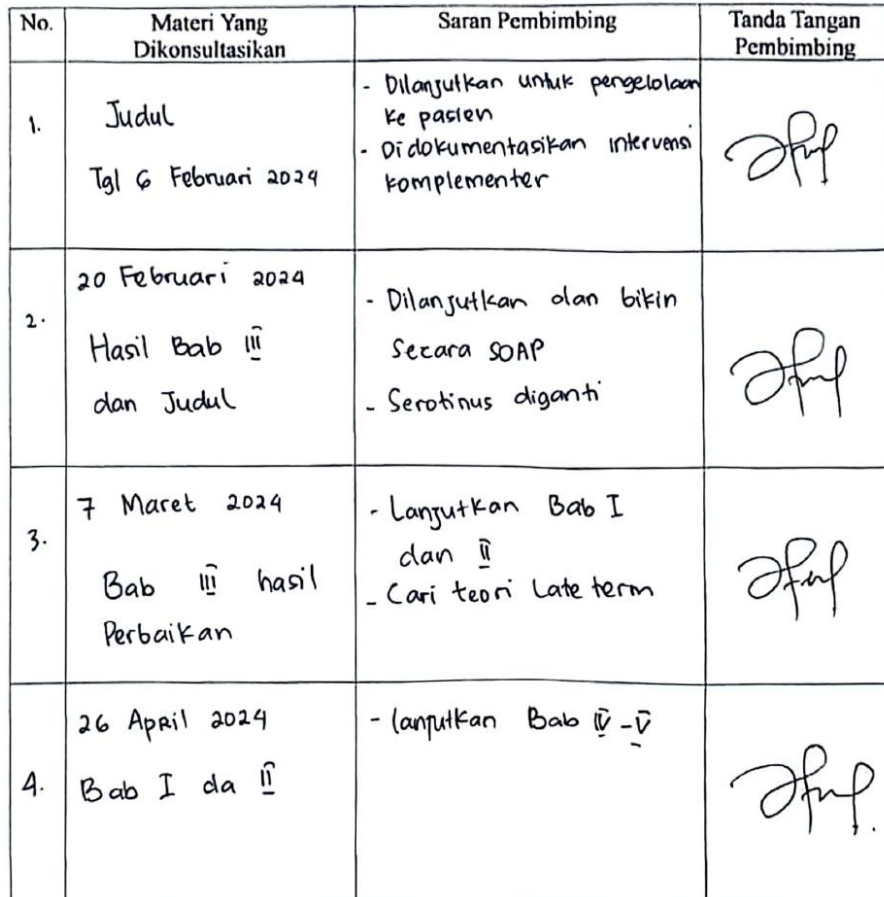 No.
Materi Yang
Dikonsultasikan
Saran Pembimbing
Tanda Tangan
Pembimbing
1.
Judul
Tgl 6 Februari 2024
- Dilanjutkan untuk pengelolaan
ke pasien
- Didokumentasikan intervensi
komplementer
2.
20 Februari 2024
Hasil Bab III
dan Judul
- Dilanjutkan dan bikin
Secara SOAP
- Serotinus diganti
3.
7 Maret 2024
Bab III hasil
Perbaikan
- Lanjutkan Bab I
dan II
- Cari teori Late term
4.
26 April 2024
Bab I da II
- lanjutkan Bab IV - V